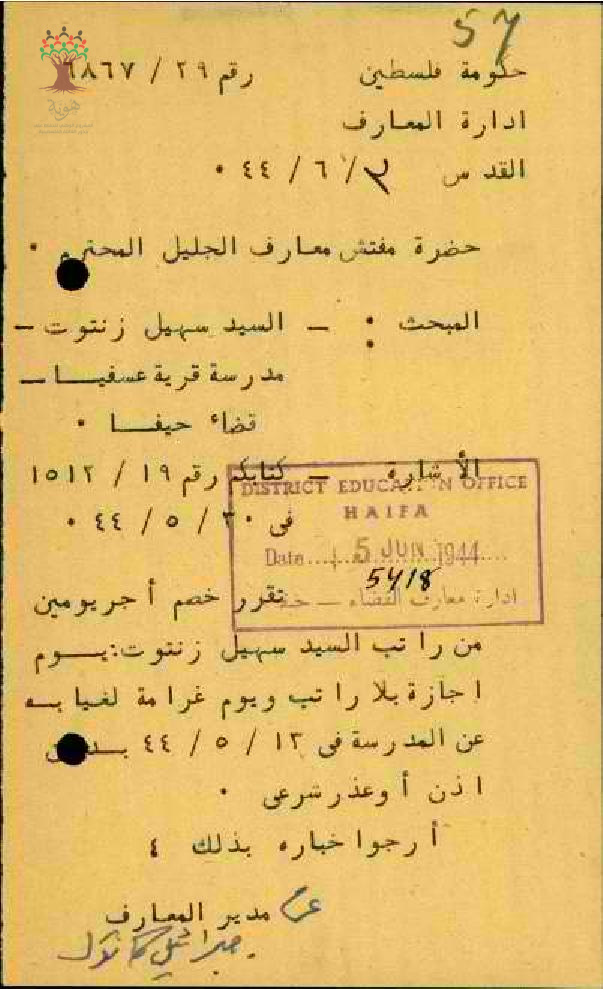 57
هوية
حكومة فلسطين رقم ٢٩ / ٦٨٦٧
ادارة المعارف
القدس ٣ / ٦ / ٤٤ ٠
حضرة مفتش معارف الجليل المحترم ٠
المبحث : — السيد سهيل زنتوت —
مدرسة قرية عسفيا —
قضاء حيفا ٠
الأشارة — كتابكم رقم ١٩ / ١٥١٢
فى ٣٠ / ٥ / ٤٤ ٠
DISTRICT EDUCATION OFFICE
HAIFA
Date 5 JUN 1944
5418
ادارة معارف القضاء —
تقرر خصم أجر يومين
من راتب السيد سهيل زنتوت: يوم
اجازة بلا راتب ويوم غرامة لغيابه
عن المدرسة فى ١٣ / ٥ / ٤٤ بدون
اذن أو عذر شرعى ٠
أرجو اخباره بذلك ٤
عن مدير المعارف